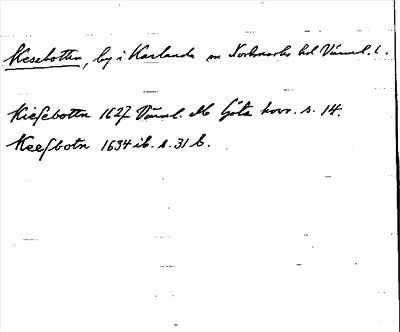 Kesebotten, by i Karlanda sn Nordmarks hd Värml. l.
Kiesebottn 1627 Värml. Ab Göta hovr. s. 14.
Keesbotn 1634 ib. s. 31 b.